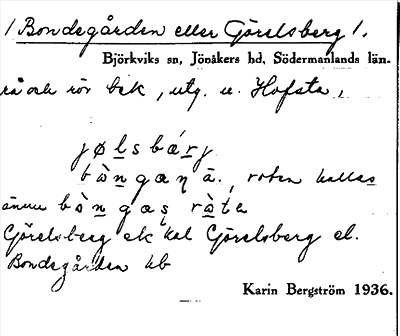 / Bondegården eller Görelsberg /.
Björkviks sn, Jönåkers hd, Södermanlands län.
rå och rör bek, utg. u. Hofsta,
jø̱lsbár̠j
bòn̠gaɳ ä., roten kallas
ännu bòn̠gas̩ ròta
Görelsberg ek kal Görelsberg el.
Bondegården kb
Karin Bergström 1936.